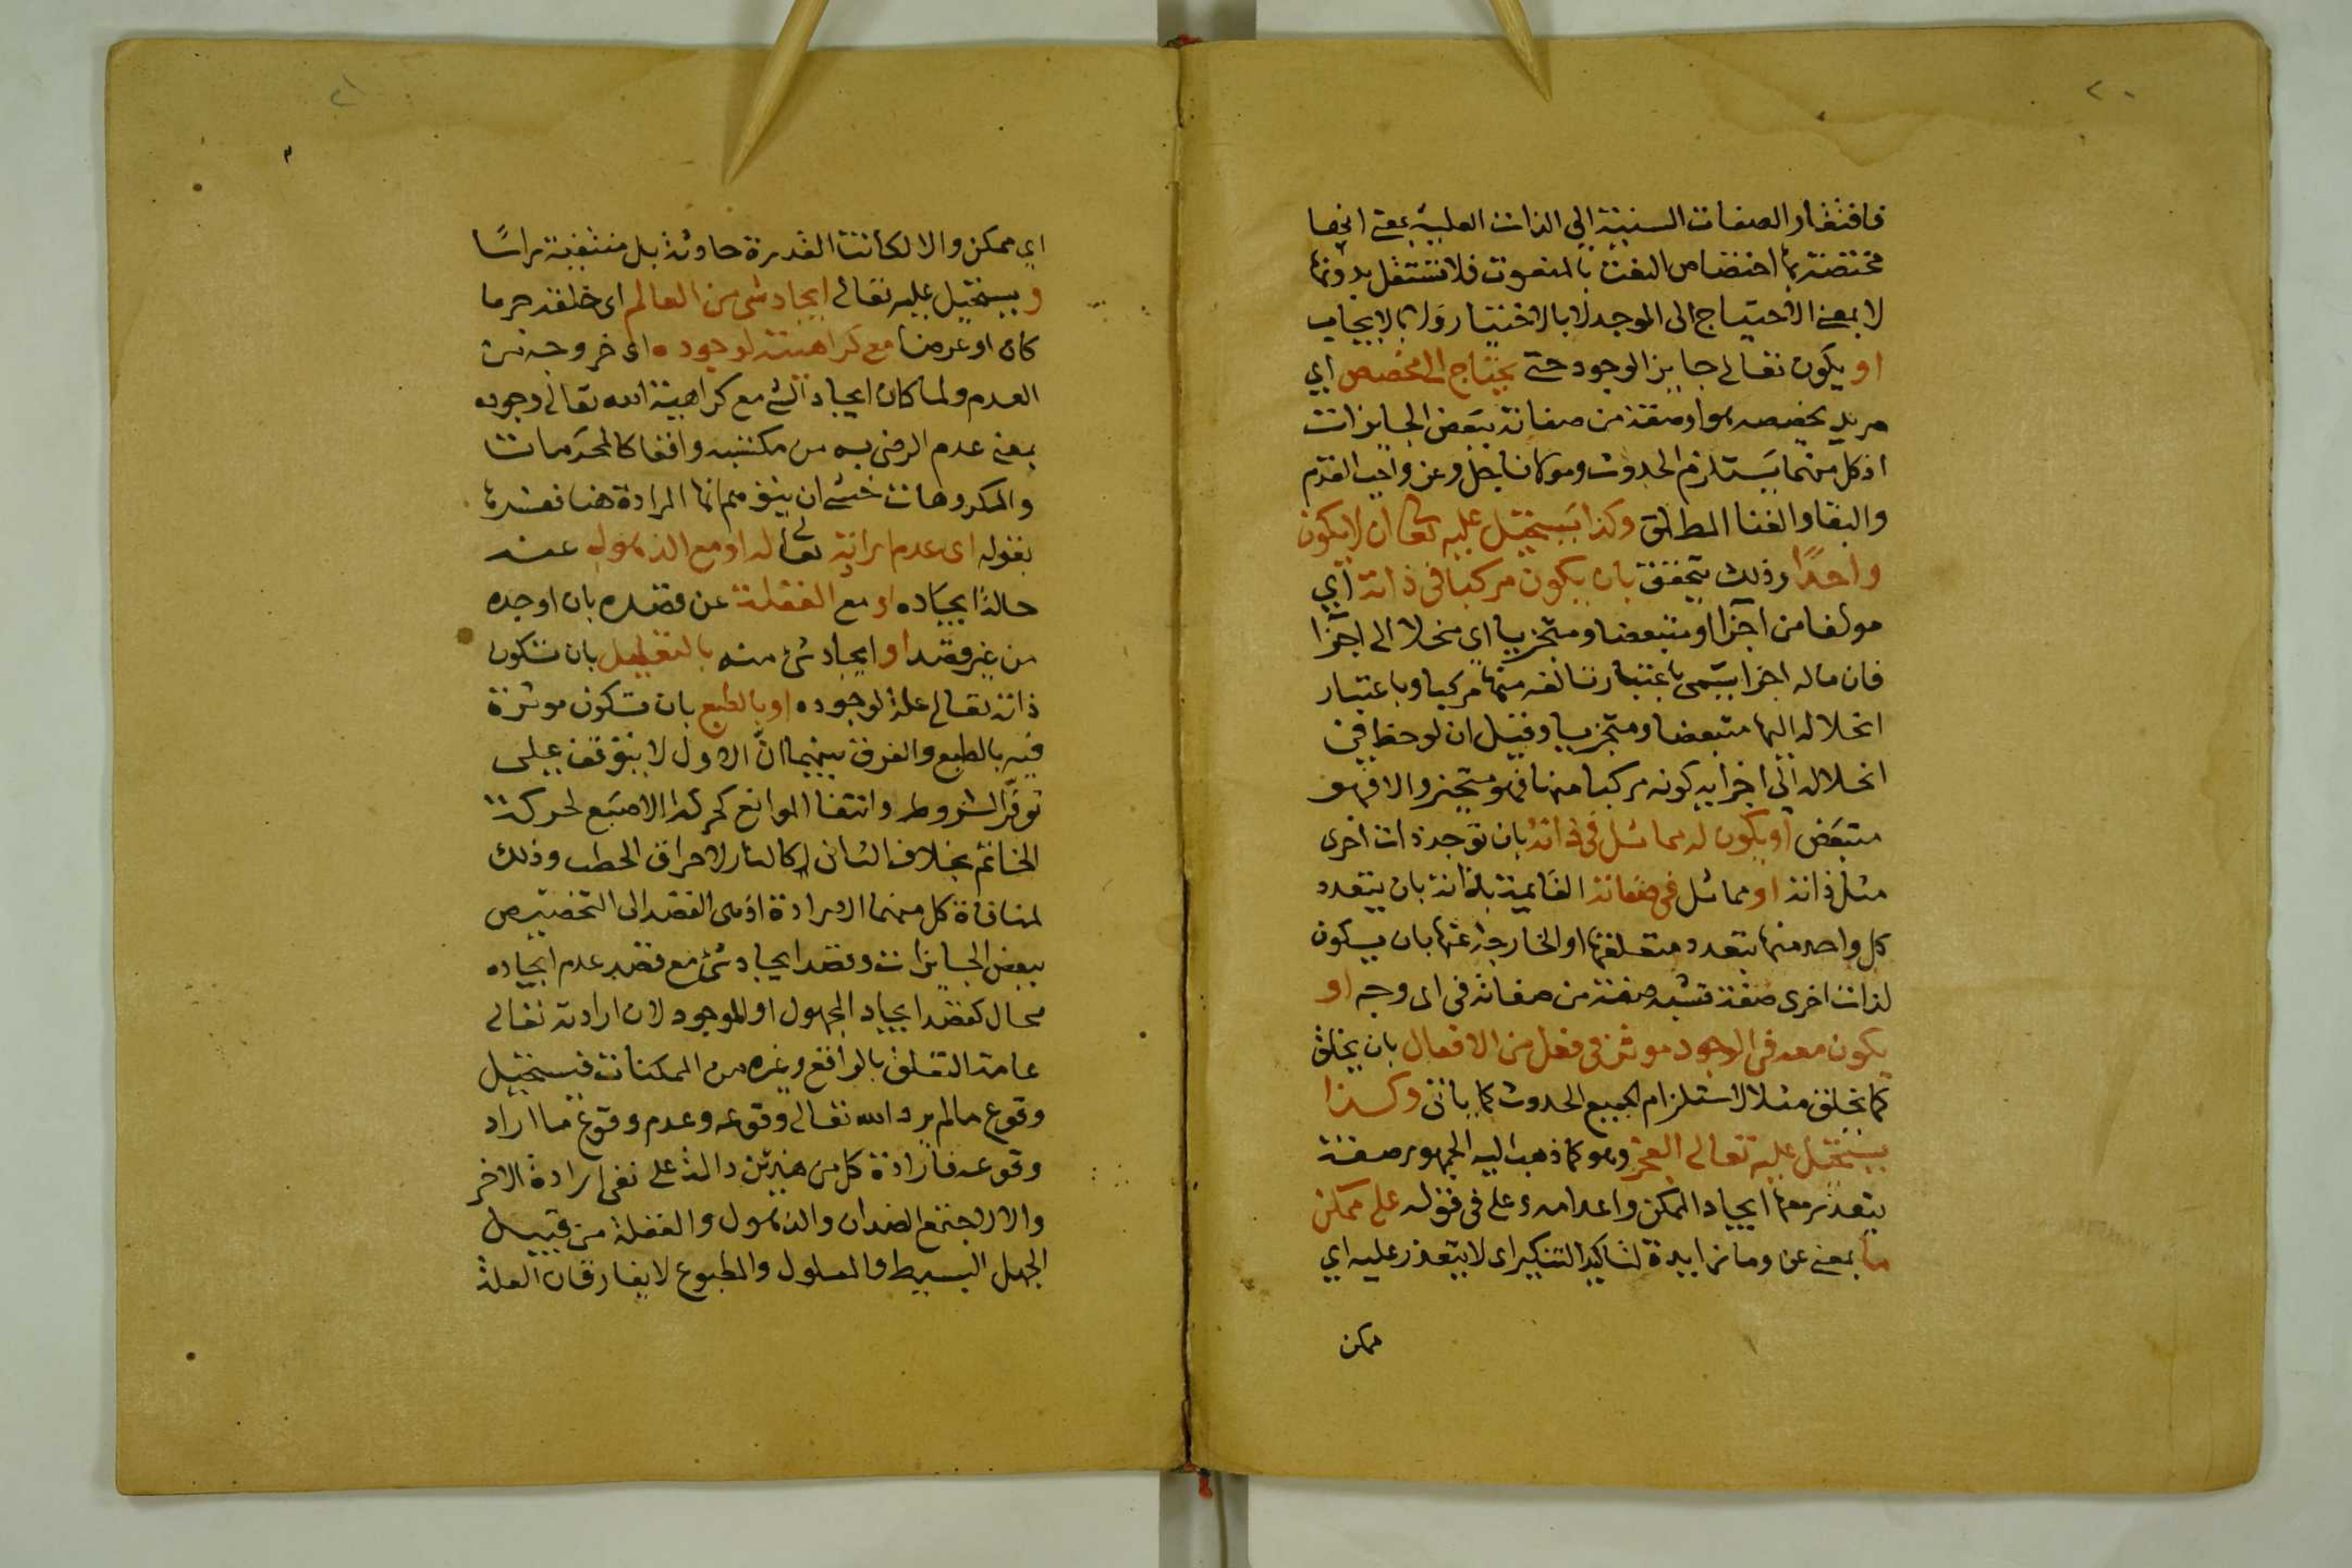 ٢٠
فافتقار الصفات السنية الى الذات العلية بمعنى انها
مختصة بها اختصاص النعت بالمنعوت فلا تستقل بدونها
لا بمعنى الاحتياج الى الموجد لا بالاختيار ولا بالايجاب
او يكون تعالى جايز الوجود حتى يحتاج الى مخصص اي
مريد يخصصه هو او صفة من صفاته ببعض الجايزات
اذ كل منهما يستلزم الحدوث ومولانا جل وعز واجب القدم
والبقا والغنا المطلق وكذا يستحيل عليه تعالى ان لا يكون
واحدًا وذلك يتحقق بان يكون مركبا في ذاته اي
مولفا من اجزا او متبعضا ومتجزيا اى منحلا الى اجزا
فان ماله اجزا يسمى باعتبار تالفه منها مركبا وباعتبار
انحلاله اليها متبعضا ومتجزيا وقيل ان لوحظ في
انحلاله الى اجزايه كونه مركبا منها فهو متجز والا فهو
متبعض او يكون له مماثل في ذاته بان توجد ذات اخرى
مثل ذاته او مماثل في صفاته القايمة بذاته بان يتعدد
كل واحد منها بتعدد متعلقها او الخارجة عنها بان يكون
لذات اخرى صفة تشبه صفة من صفاته في اى وجه او
يكون معه في الوجود موثر في فعل من الافعال بان يخلق
كما يخلق مثلا لاستلزام الجميع الحدوث كما ياتي وكذا
يستحيل عليه تعالى العجز وهو كما ذهب اليه الجمهور صفة
يتعذر معها ايجاد الممكن واعدامه وعلى في قوله على ممكن
ما بمعنى عن وما زايدة لتاكيد التنكير اى لا يتعذر عليه اي
ممكن
٢١
اي ممكن والا لكانت القدرة حادثة بل منتفية راسًا
ويستحيل عليه تعالى ايجاد شى من العالم اى خلقه جرما
كان او عرضا مع كراهيته لوجوده اى خروجه من
العدم ولما كان ايجاد الشي مع كراهية الله تعالى وجوده
بمعنى عدم الرضى به من مكتسبه واقعا كالمحرمات
والمكروهات خشى ان يتوهم انها المرادة هنا ففسرها
بقوله اى عدم ارادته تعالى له او مع الذهول عنه
حالة ايجاده او مع الغفلة عن قصده بان اوجده
من غير قصد او ايجاد شئ منه بالتعليل بان تكون
ذاته تعالى علة لوجوده او بالطبع بان تكون موثرة
فيه بالطبع والفرق بينهما انّ الاول لا يتوقف على
توفّر الشروط وانتفا الموانع كحركة الاصبع لحركة
الخاتم بخلاف الثانى كالنار لاحراق الحطب وذلك
لمنافاة كل منهما الارادة اذ هى القصد الى التخصيص
ببعض الجايزات وقصد ايجاد شئ مع قصد عدم ايجاده
محال كقصد ايجاد المجهول او الموجود لان ارادته تعالى
عامة التعلق بالواقع وغيره من الممكنات فيستحيل
وقوع مالم يرد الله تعالى وقوعه وعدم وقوع ما اراد
وقوعه فارادة كل من ضدين دالة على نفى ارادة الاخر
والا لاجتمع الضدان والذهول والغفلة من قبيل
الجهل البسيط والمعلول والمطبوع لا يفارقان العلة